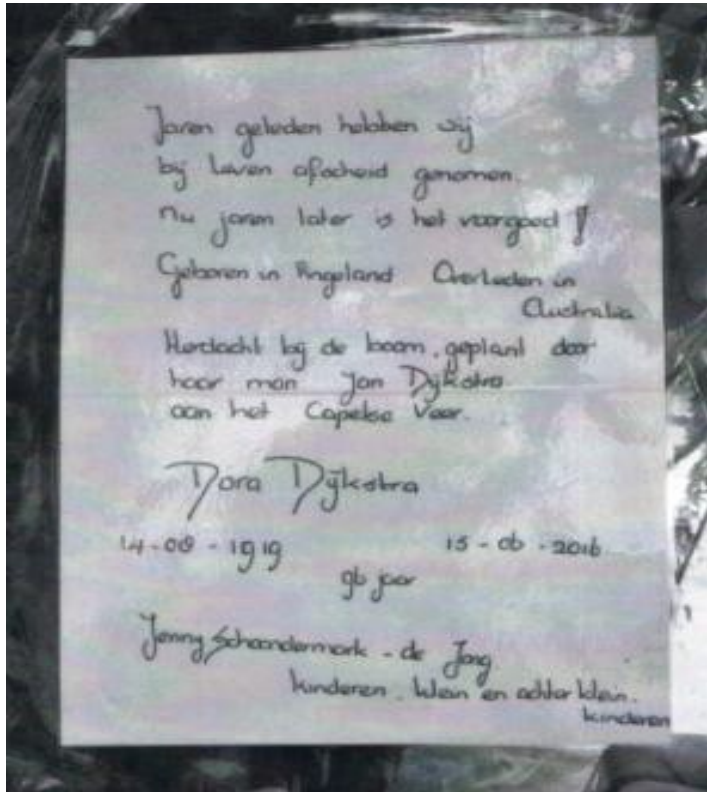 Jaren geleden hebben wij
bij leven afscheid genomen.
Nu jaren later is het voorgoed!
Geboren in Engeland Overleden in
Australia
Herdacht bij de boom, geplant door
haar man Jan Dijkstra
aan het Capelse Veer.
Dora Dijkstra
14-08-1919 15-06-2016
96 jaar
Jenny Schoondermark - de Jong
kinderen, klein en achterklein.
kinderen